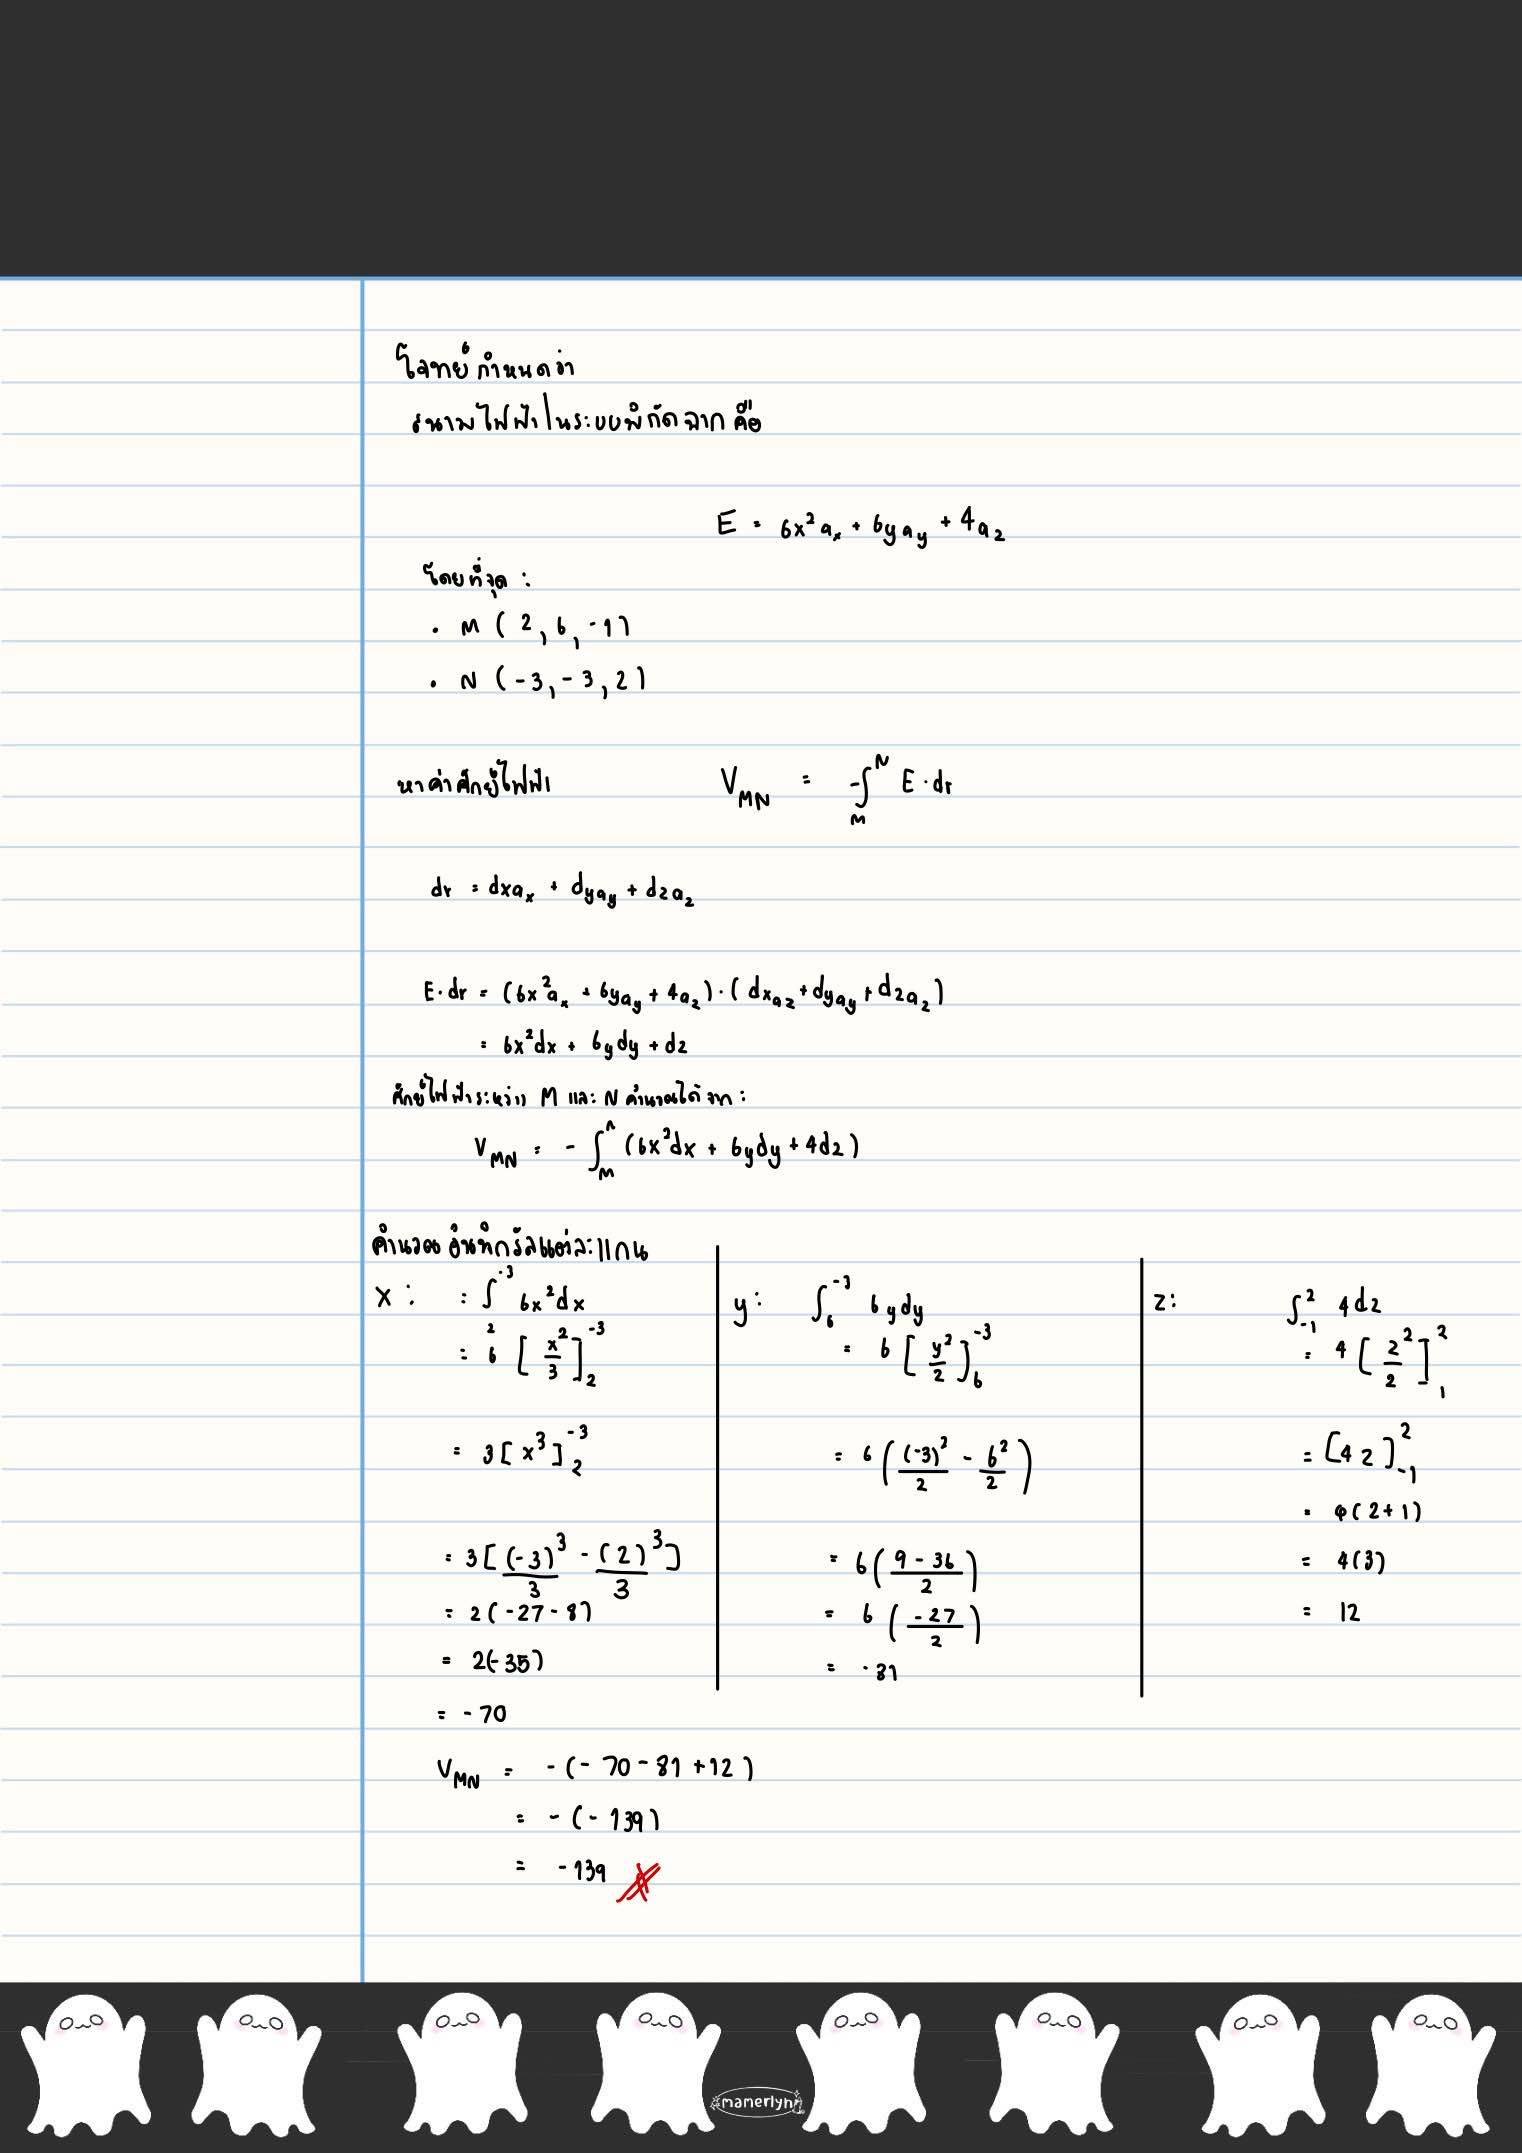 โจทย์กำหนดว่า
สนามไฟฟ้าในระบบพิกัดฉาก คือ
E = 6x²aₓ + 6yay + 4az
โดยที่จุด :
• M ( 2, 6, -1)
• N (-3, -3, 2)
หาค่าศักย์ไฟฟ้า V_MN = -∫_M^N E · dr
dr = dxaₓ + dyay + dzaz
E · dr = (6x²aₓ + 6yay + 4az) · ( dxaz + dyay + dzaz)
= 6x²dx + 6ydy + dz
ศักย์ไฟฟ้าระหว่าง M และ N คำนวณได้จาก :
V_MN = - ∫_M^N (6x²dx + 6ydy + 4dz)
คำนวณ อินทิกรัลแต่ละแกน
x : = ∫_2^-3 6x²dx
= 6 [ x²/3 ]_2^-3
= 3 [ x³ ]_2^-3
= 3 [ (-3)³/3 - (2)³/3 ]
= 2 ( -27 - 8)
= 2(-35)
= -70
y : ∫_6^-3 6ydy
= 6 [ y²/2 ]_6^-3
= 6 ( (-3)²/2 - 6²/2 )
= 6 ( 9 - 36/2 )
= 6 ( -27/2 )
= -81
z : ∫_-1^2 4dz
= 4 [ z²/2 ]_1^2
= [4z]_-1^2
= 4(2+1)
= 4(3)
= 12
V_MN = -(-70 - 81 + 12)
= -(-139)
= -139
mamerlyn